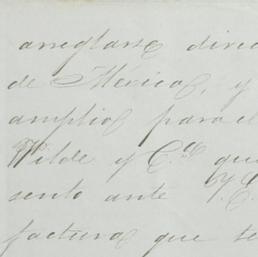 arreglarse direc
de México, y
amplio para el
Wilde y Cª que
sento ante
factura que te